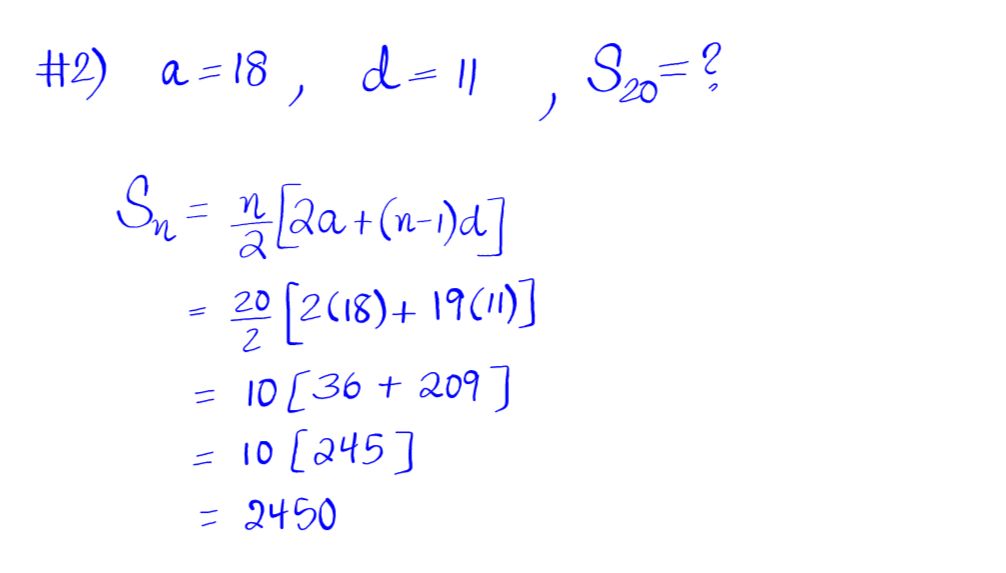 #2) a = 18 , d = 11 , S₂₀ = ?
Sₙ = n/2 [2a + (n-1)d]
= 20/2 [2(18) + 19(11)]
= 10 [36 + 209]
= 10 [245]
= 2450